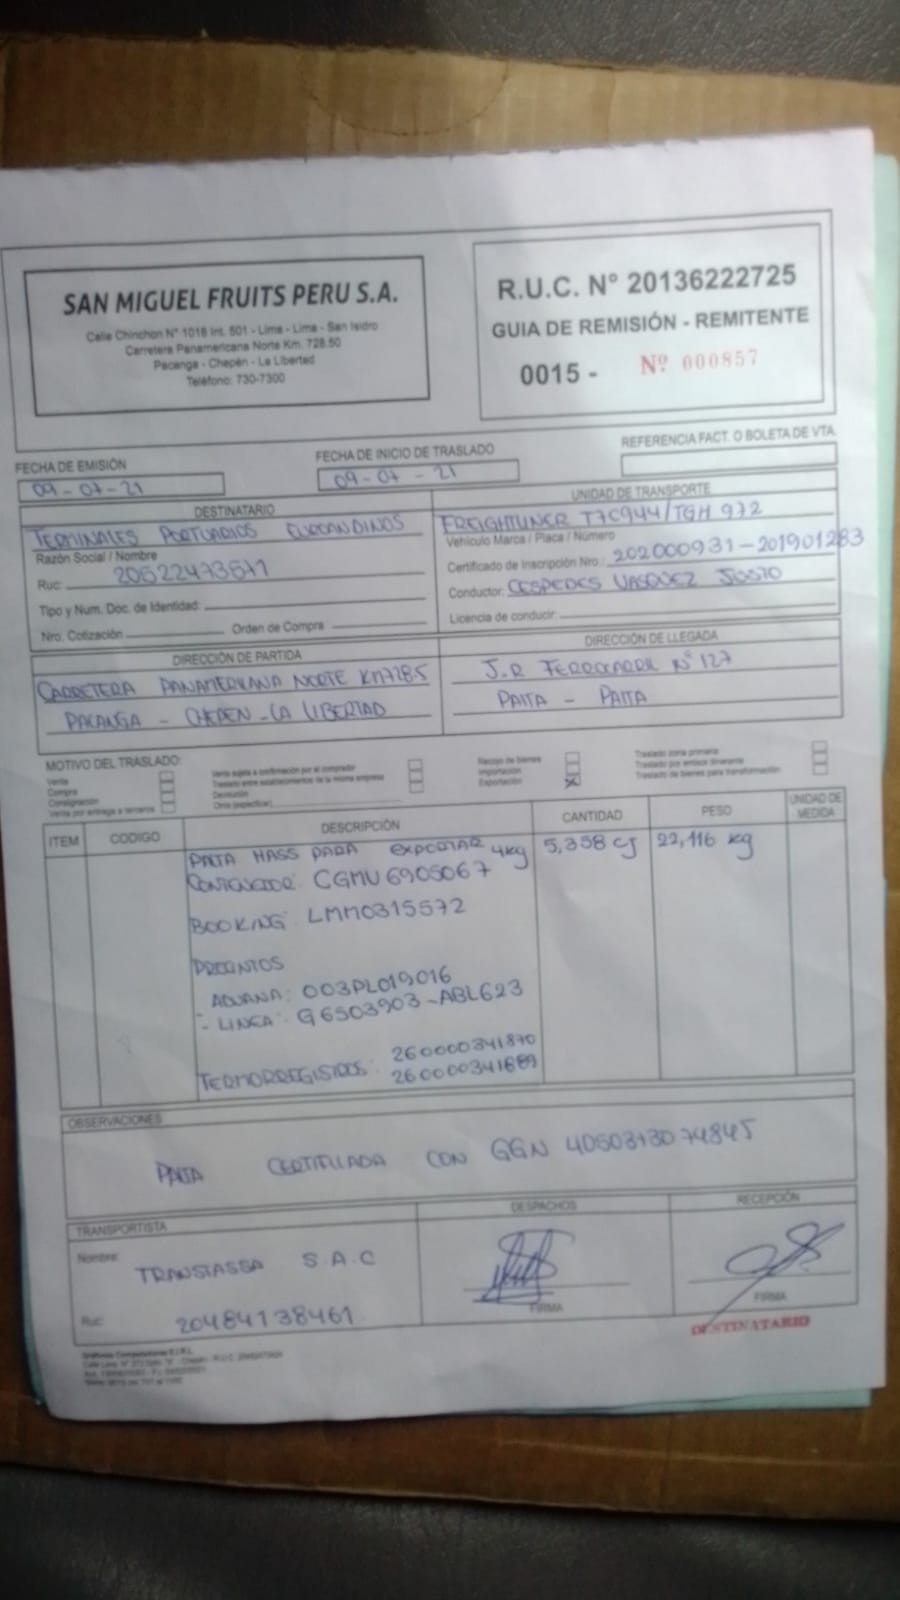 SAN MIGUEL FRUITS PERU S.A.
Calle Chinchon N° 1018 Int. 501 - Lima - Lima - San Isidro
Carretera Panamericana Norte Km. 728.50
Pacanga - Chepén - La Libertad
Teléfono: 730-7300
R.U.C. N° 20136222725
GUIA DE REMISIÓN - REMITENTE
0015 - Nº 000857
FECHA DE EMISIÓN
09-07-21
FECHA DE INICIO DE TRASLADO
09-07-21
REFERENCIA FACT. O BOLETA DE VTA.
DESTINATARIO
TERMINALES PORTUARIOS EUROANDINOS
Razón Social / Nombre
Ruc: 20522473571
Tipo y Num. Doc. de Identidad:
Nro. Cotización Orden de Compra
UNIDAD DE TRANSPORTE
FREIGHTLINER T7C944/TGH 972
Vehículo Marca / Placa / Número
Certificado de Inscripción Nro.: 202000931-201901283
Conductor: CESPEDES VASQUEZ JUSTO
Licencia de conducir:
DIRECCIÓN DE PARTIDA
CARRETERA PANAMERICANA NORTE KM728.5
PACANGA - CHEPEN - LA LIBERTAD
DIRECCIÓN DE LLEGADA
J.R FERROCARRIL N° 127
PAITA - PAITA
MOTIVO DEL TRASLADO:
Venta
Compra
Consignación
Venta por entrega a terceros
Venta sujeta a confirmación por el comprador
Traslado entre establecimientos de la misma empresa
Devolución
Otros (especificar)
Recojo de bienes
Importación
Exportación X
Traslado zona primaria
Traslado por emisor itinerante
Traslado de bienes para transformación
ITEM CODIGO DESCRIPCIÓN CANTIDAD PESO UNIDAD DE MEDIDA
PALTA HASS PARA EXPORTAR 4kg 5,358 CJ 22,116 kg
CONTENEDOR: CGMU 6905067
BOOKING: LMM0315572
PRECINTOS
ADUANA: 003PL019016
- LINEA: G6503903-ABL623
TERMORREGISTROS: 260000341870
OBSERVACIONES
PALTA CERTIFICADA CON GGN 4050373074845
TRANSPORTISTA
Nombre: TRANSTASSA S.A.C
Ruc: 20484138461
DESPACHOS
FIRMA
RECEPCIÓN
FIRMA
DESTINATARIO